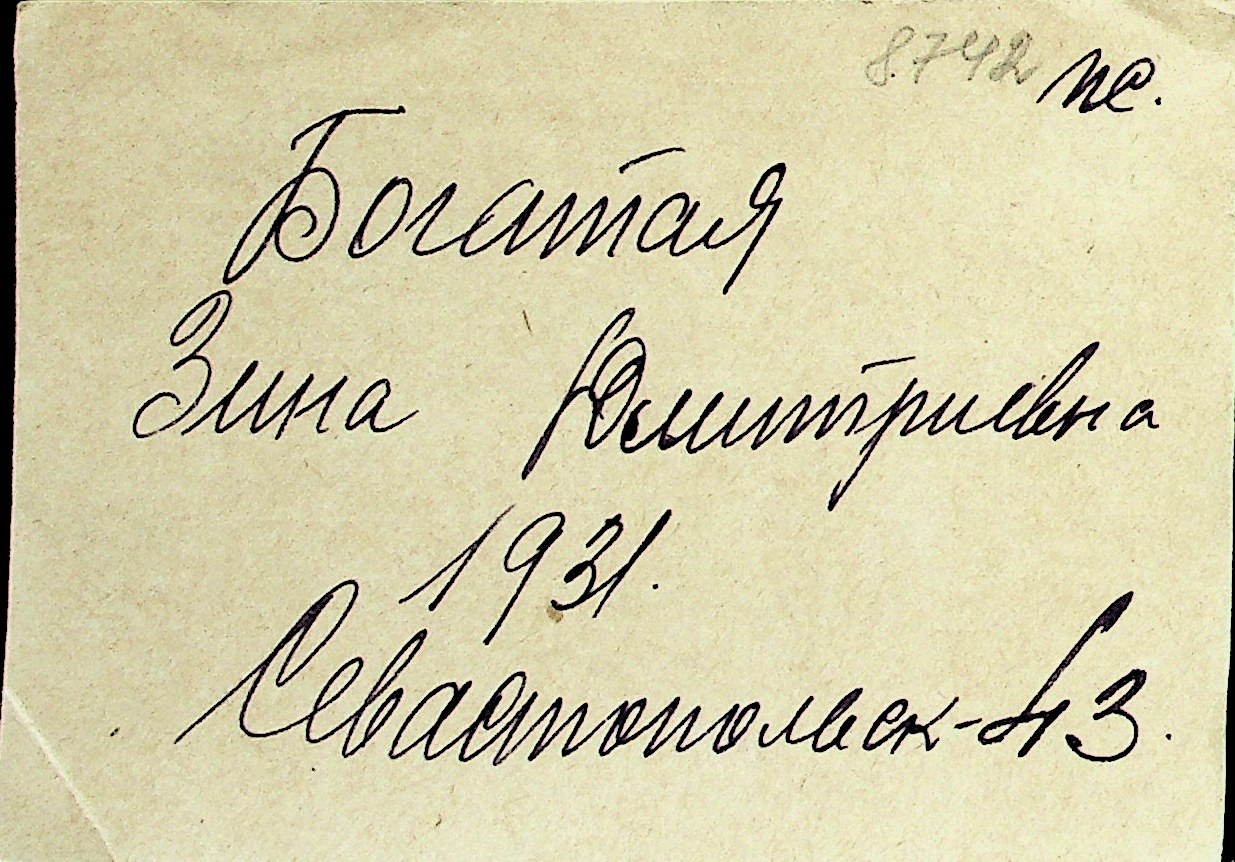 8742 пс.
Богатая
Зина Дмитриевна
1931.
Севастопольск-43.